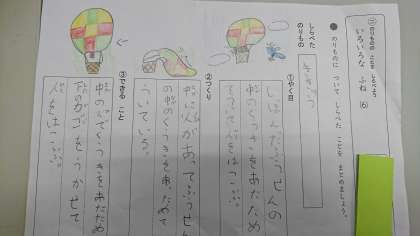 二 のりものの ことを しらべよう
いろいろな ふね ⑥
● のりものに ついて しらべた ことを まとめましょう。
しらべた
のりもの
ききゅう
①やく目
しぼんだふうせんの
中のくうきをあたため
②つくり
の中のくうきをあたためて
ういている。
③できる こと
中のくうきをあたため
下のカゴをうかせて
人をはこぶ。